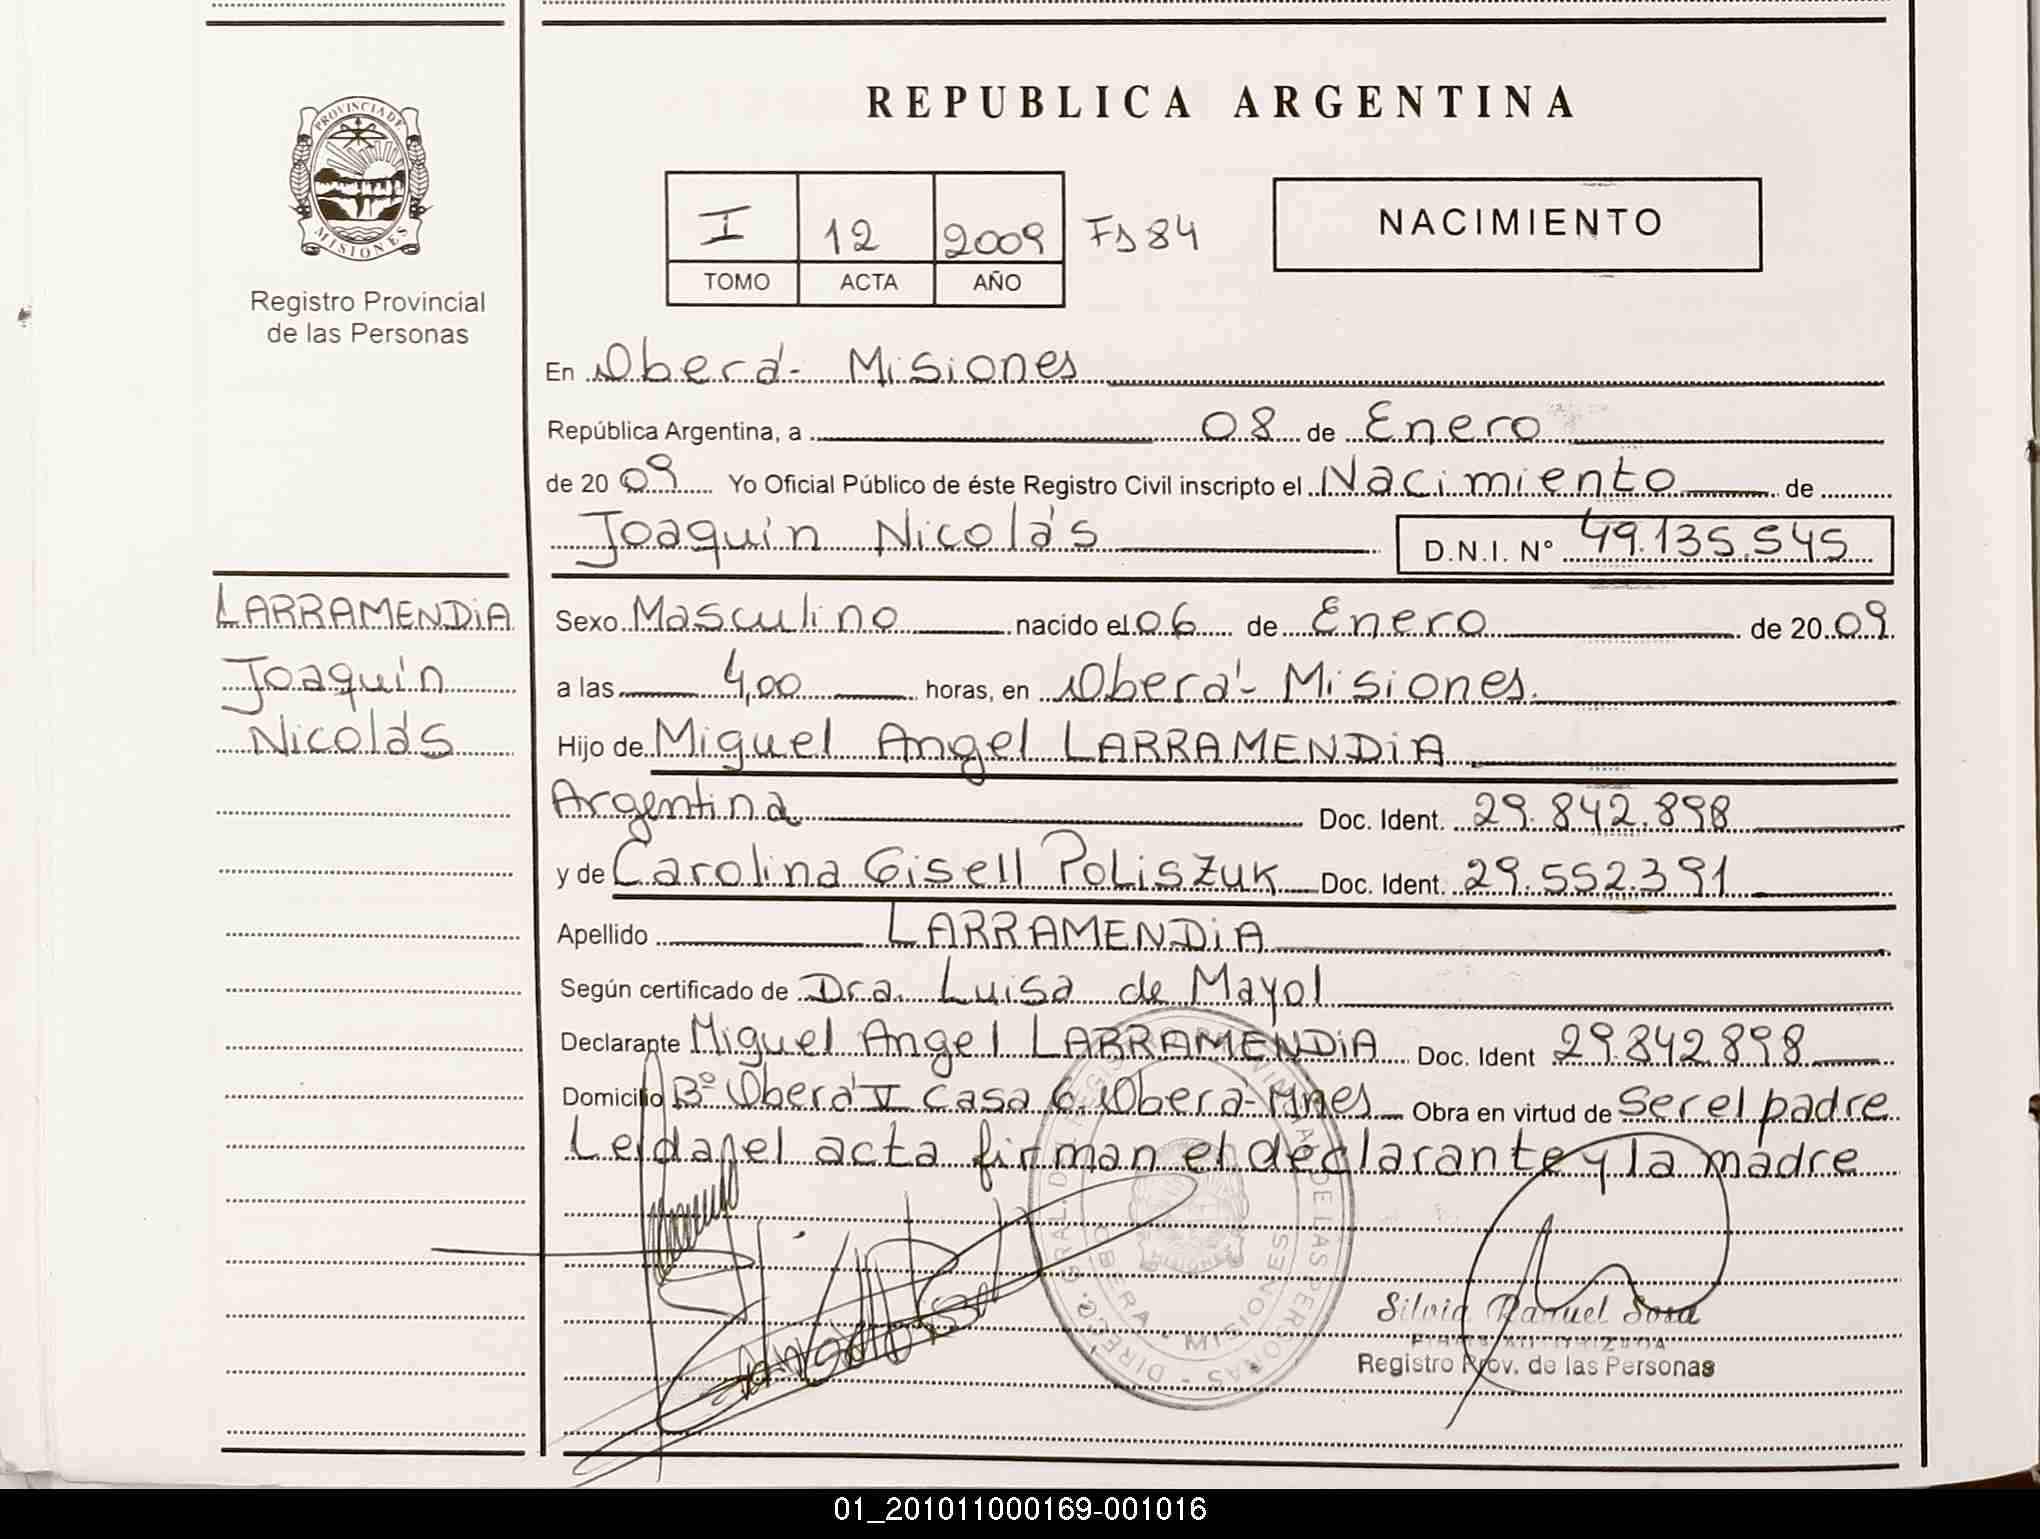 PROVINCIA DE
MISIONES
Registro Provincial
de las Personas
REPUBLICA ARGENTINA
I 12 2009 Fs 84
TOMO ACTA AÑO
NACIMIENTO
En Oberá - Misiones
República Argentina, a 08 de Enero
de 20 09 Yo Oficial Público de éste Registro Civil inscripto el Nacimiento de
Joaquín Nicolás D.N.I. N° 49.135.545
LARRAMENDiA
Joaquín
Nicolás
Sexo Masculino nacido el 06 de Enero de 20 09
a las 4,00 horas, en Oberá - Misiones.
Hijo de Miguel Angel LARRAMENDiA
Argentina Doc. Ident. 29.842.898
y de Carolina Gisell POLiSZUK Doc. Ident. 29.552.391
Apellido LARRAMENDiA
Según certificado de Dra. Luisa de Mayol
Declarante Miguel Angel LARRAMENDiA Doc. Ident 29.842.898
Domicilio B° Oberá V casa 6. Oberá - Mnes Obra en virtud de Ser el padre
Leida el acta firman el declarante y la madre
OBERA - MISIONES
Silvia Raquel Sosa
FIRMA AUTORIZADA
Registro Prov. de las Personas
01_201011000169-001016